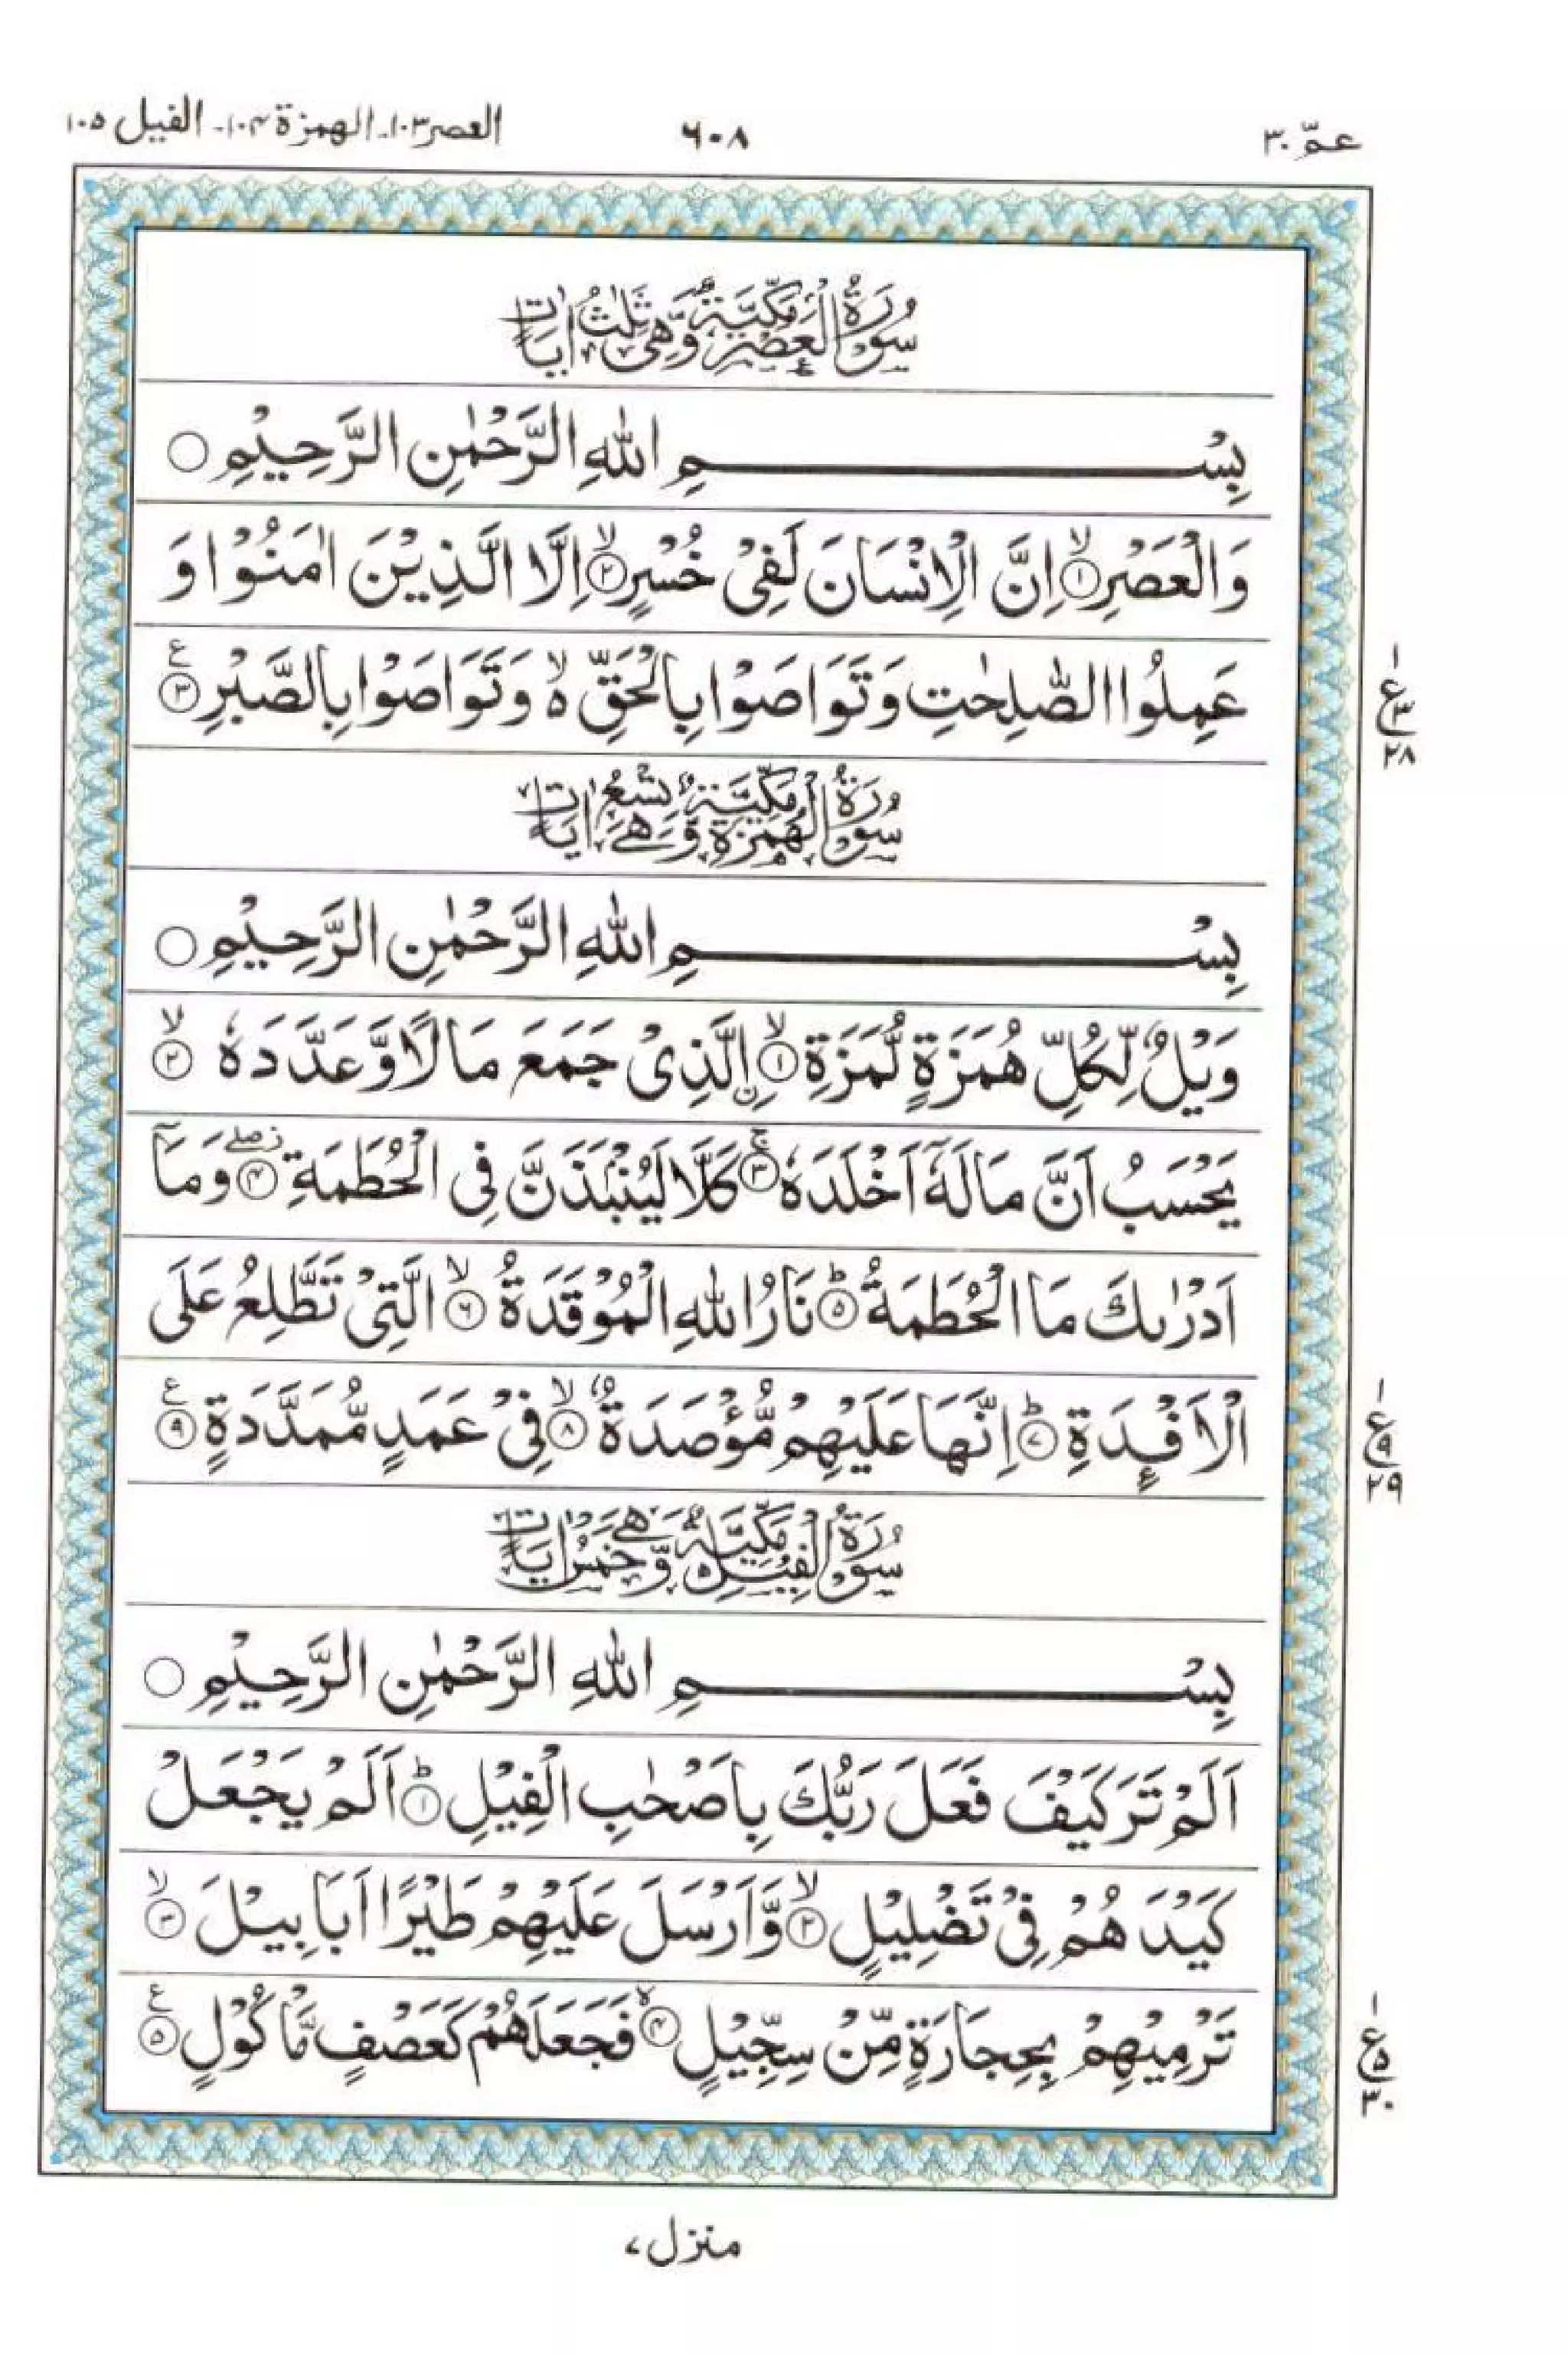 عـمّ ٣٠ ٦٠٨ العصر ١٠٣ـ الهمزة ١٠٤ـ الفيل ١٠٥
سُوْرَةُ الْعَصْرِ مَكِّيَّةٌ وَّهِىَ ثَلٰثُ اٰيَاتٍ
بِسْــــــمِ اللّٰهِ الرَّحْمٰنِ الرَّحِيْمِ ○
وَالْعَصْرِ ۙ﴿١﴾ اِنَّ الْاِنْسَانَ لَفِىْ خُسْرٍ ۙ﴿٢﴾ اِلَّا الَّذِيْنَ اٰمَنُوْا وَ
عَمِلُوا الصّٰلِحٰتِ وَتَوَاصَوْا بِالْحَقِّ ۙ۬ وَتَوَاصَوْا بِالصَّبْرِ ﴿٣﴾ ع
ع ١ ٣ ٢٨
سُوْرَةُ الْهُمَزَةِ مَكِّيَّةٌ وَّهِىَ تِسْعُ اٰيَاتٍ
بِسْــــــمِ اللّٰهِ الرَّحْمٰنِ الرَّحِيْمِ ○
وَيْلٌ لِّكُلِّ هُمَزَةٍ لُّمَزَةِ ۙ﴿١﴾ اِ۟لَّذِىْ جَمَعَ مَالًا وَّعَدَّدَهٗ ۙ﴿٢﴾
يَحْسَبُ اَنَّ مَالَهٗۤ اَخْلَدَهٗ ۚ﴿٣﴾ كَلَّا لَيُنْۢبَذَنَّ فِى الْحُطَمَةِ ۖ﴿٤﴾ وَمَاۤ
اَدْرٰىكَ مَا الْحُطَمَةُ ؕ﴿٥﴾ نَارُ اللّٰهِ الْمُوْقَدَةُ ۙ﴿٦﴾ الَّتِىْ تَطَّلِعُ عَلَى
الْاَفْـِٕدَةِ ؕ﴿٧﴾ اِنَّهَا عَلَيْهِمْ مُّؤْصَدَةٌ ۙ﴿٨﴾ فِىْ عَمَدٍ مُّمَدَّدَةٍ ﴿٩﴾ ع
ع ١ ٩ ٢٩
سُوْرَةُ الْفِيْلِ مَكِّيَّةٌ وَّهِىَ خَمْسُ اٰيَاتٍ
بِسْــــــمِ اللّٰهِ الرَّحْمٰنِ الرَّحِيْمِ ○
اَلَمْ تَرَ كَيْفَ فَعَلَ رَبُّكَ بِاَصْحٰبِ الْفِيْلِ ؕ﴿١﴾ اَلَمْ يَجْعَلْ
كَيْدَهُمْ فِىْ تَضْلِيْلٍ ۙ﴿٢﴾ وَّاَرْسَلَ عَلَيْهِمْ طَيْرًا اَبَابِيْلَ ۙ﴿٣﴾
تَرْمِيْهِمْ بِحِجَارَةٍ مِّنْ سِجِّيْلٍ ﴿٤﴾ فَجَعَلَهُمْ كَعَصْفٍ مَّاْكُوْلٍ ﴿٥﴾ ع
ع ١ ٥ ٣٠
منزل ٧